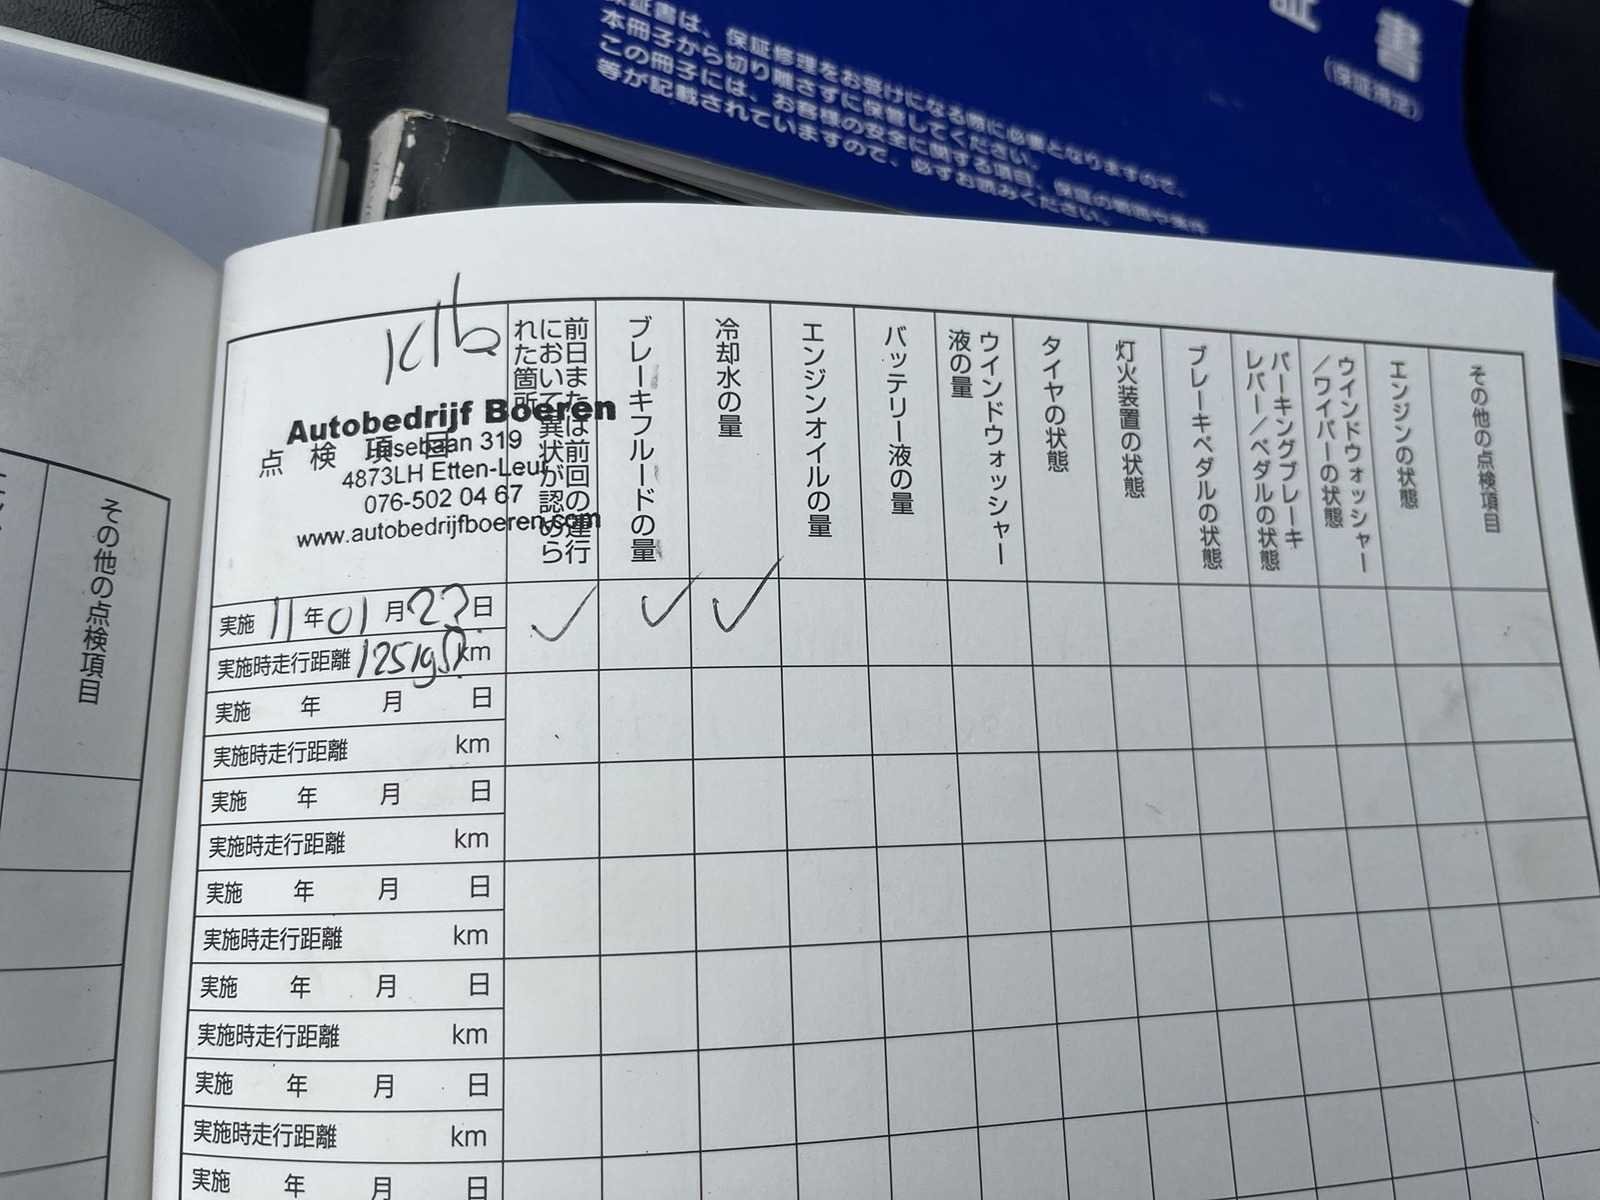 証 書
(保証規定)
保証書は、保証修理をお受けになる際に必要となりますので、
本冊子から切り離さずに保管してください。
この冊子には、お客様の安全に関する項目、保証の範囲や条件
等が記載されていますので、必ずお読みください。
その他の点検項目
Autobedrijf Boeren
点検項目
sebaan 319
4873LH Etten-Leur
076-502 04 67
www.autobedrijfboeren.com
前日または前回の運行
において異状が認めら
れた箇所
ブレーキフルードの量
冷却水の量
エンジンオイルの量
バッテリー液の量
ウインドウォッシャー
液の量
タイヤの状態
灯火装置の状態
ブレーキペダルの状態
パーキングブレーキ
レバー/ペダルの状態
ウインドウォッシャー
/ワイパーの状態
エンジンの状態
その他の点検項目
実施 11年01月23日
実施時走行距離 km
実施 年 月 日
実施時走行距離 km
実施 年 月 日
実施時走行距離 km
実施 年 月 日
実施時走行距離 km
実施 年 月 日
実施時走行距離 km
実施 年 月 日
実施時走行距離 km
実施 年 月 日